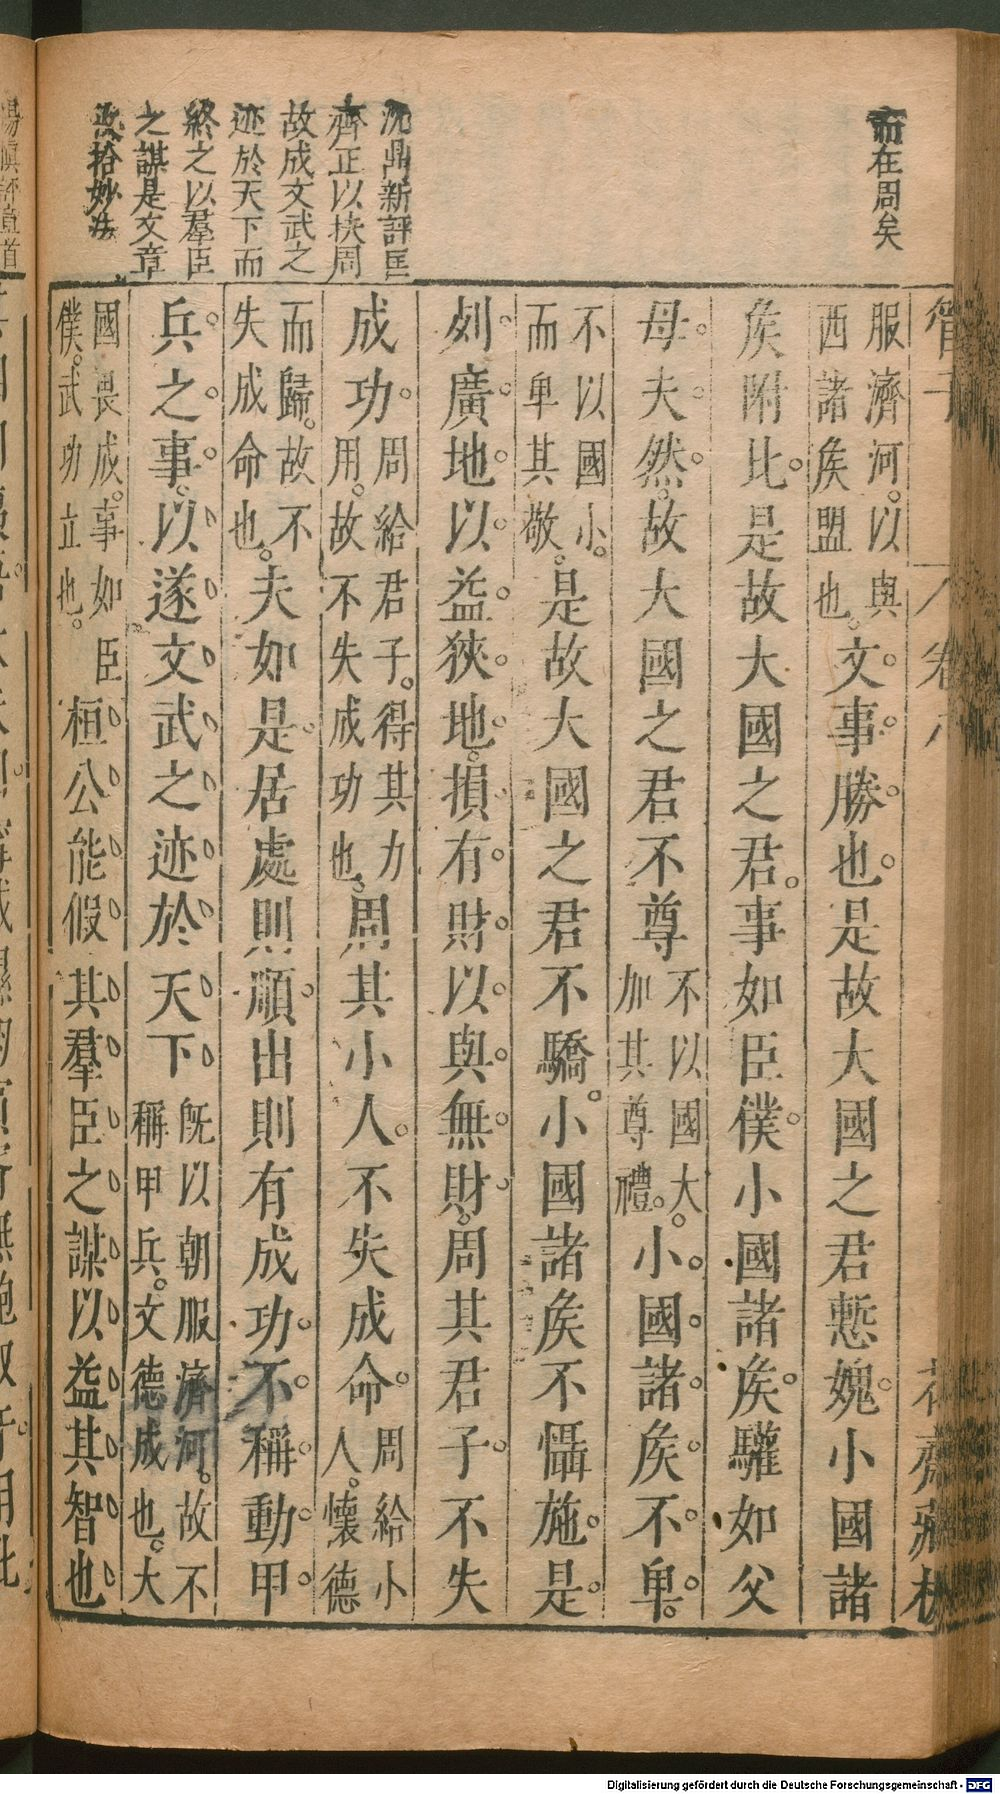 而在周矣
沈鼎新評匡
齊正以挾周
故成文武之
迹於天下而
終之以羣臣
之謀是文章
收拾妙法
管子
卷八
花齋藏板
服濟河。以與
西諸矦盟也。
文事勝也是故大國之君慙媿小國諸
矦附比是故大國之君。事如臣僕小國諸矦驩如父
母。夫然。故大國之君不尊
不以國大
加其尊禮。
小國諸矦不卑。
不以國小。
而卑其敬。
是故大國之君不驕小國諸矦不懾施是
列廣地以益狹地。損有財以與無財。周其君子不失
成功。
周給君子。得其力
用。故不失成功也。
周其小人不失成命
周給小
人。懷德
而歸。故不
失成命也。
夫如是居處則順出則有成功不稱動甲
兵之事。以遂文武之迹於天下
旣以朝服濟河。故不
稱甲兵。文德成也。大
國畏成。事如臣
僕。武功立也。
桓公能假其羣臣之謀以益其智也
Digitalisierung gefördert durch die Deutsche Forschungsgemeinschaft - DFG